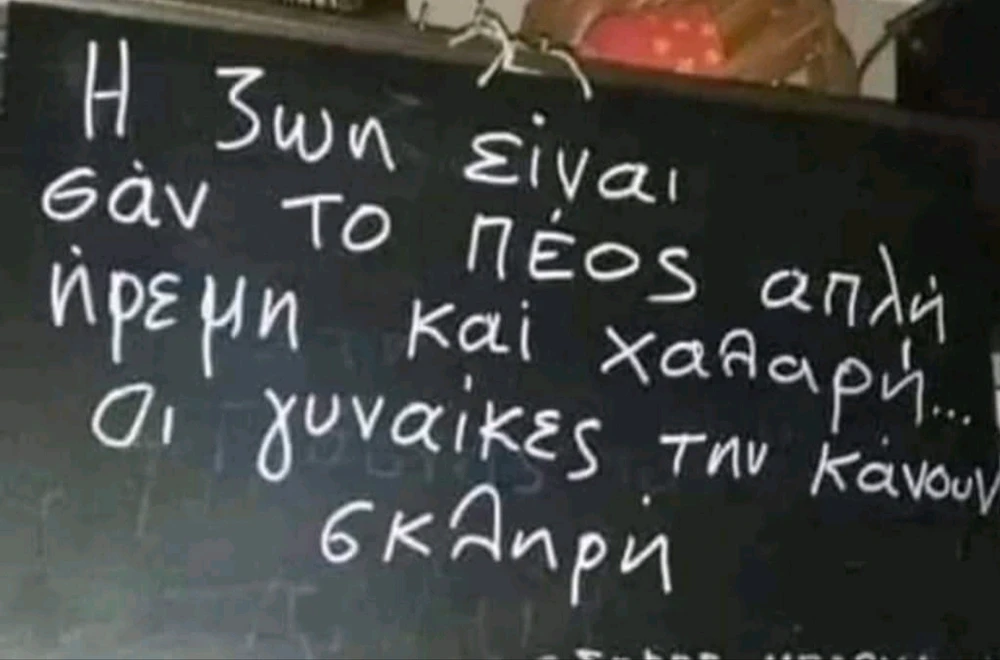 Η ζωη είναι
σάν το πέος απλή
ήρεμη και χαλαρή...
Οι γυναίκες την κάνουν
σκληρή